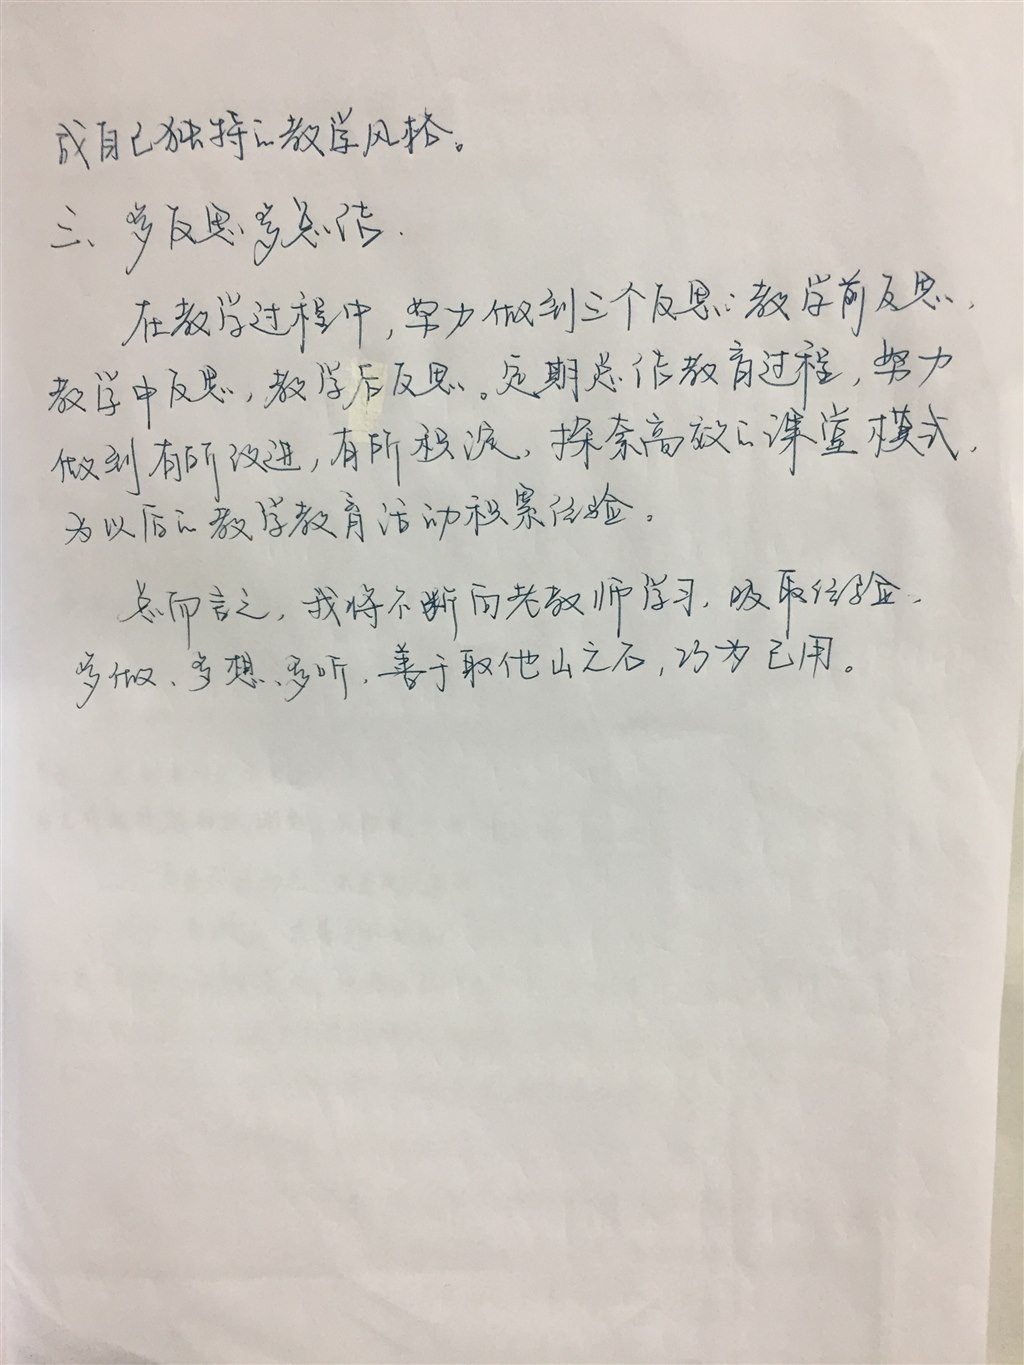 成自己独特的教学风格。
三、多反思多总结.
在教学过程中,努力做到三个反思:教学前反思,
教学中反思,教学后反思。定期总结教育过程,努力
做到有所改进,有所积淀,探索高效的课堂模式,
为以后的教学教育活动积累经验。
总而言之,我将不断向老教师学习,吸取经验,
多做、多想、多听,善于取他山之石,巧为己用。